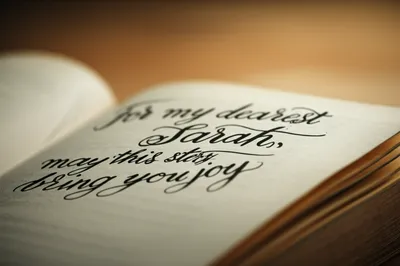 For my dearest
Sarah,
may this story
bring you joy